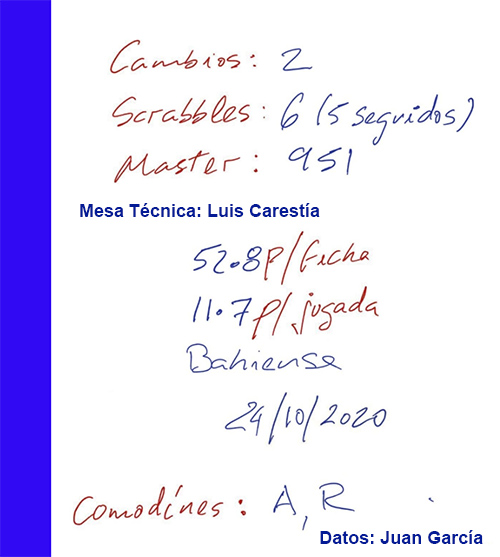 Cambios: 2
Scrabbles: 6 (5 seguidos)
Master: 951
Mesa Técnica: Luis Carestía
52.8P/Ficha
11.7P/jugada
Bahiense
24/10/2020
Comodínes: A, R
Datos: Juan García